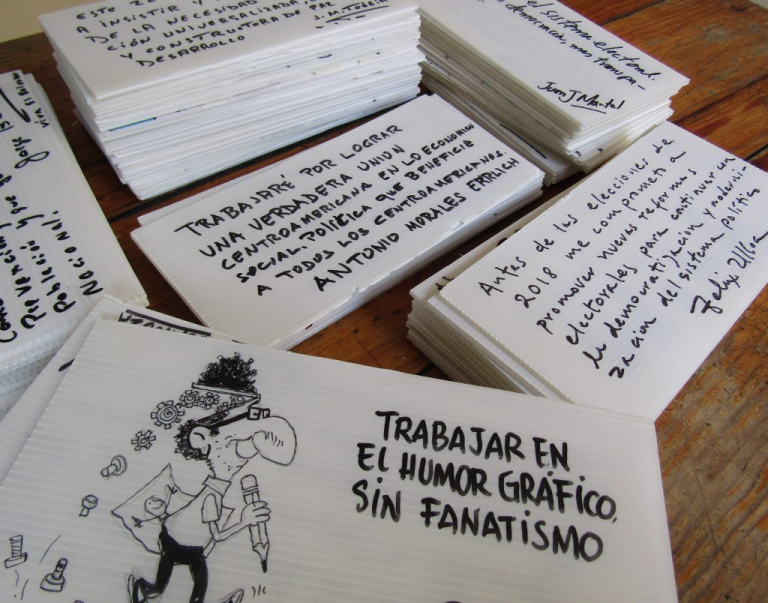 ESTO ES
A INSISTIR Y
DE LA NECESIDAD
Y CONSTRUCTORA DE PAZ
Y DESARROLLO
el sistema electoral.
democracia, mas transpa-
Juan J Martel
Nacional,
TRABAJARÉ POR LOGRAR
UNA VERDADERA UNION
CENTROAMERICANA EN LO ECONOMICO
SOCIAL, POLITICA QUE BENEFICIE
A TODOS LOS CENTROAMERICANOS.
ANTONIO MORALES EHRLICH
Antes de las elecciones de
2018 me comprometo a
promover nuevas reformas
electorales para continuar con
la democratización y moderni-
zación del sistema político
Felix Ulloa
TRABAJAR EN
EL HUMOR GRÁFICO,
SIN FANATISMO